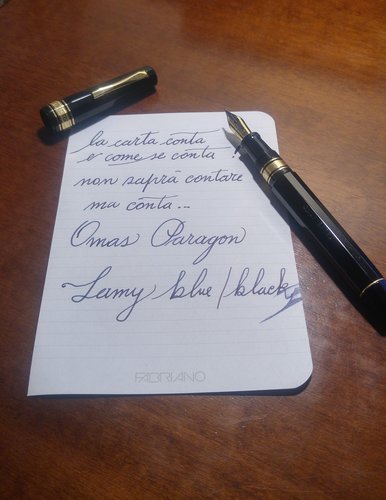 la carta conta
e come se conta !
non saprà contare
ma conta...
Omas Paragon
Lamy blue/black
FABRIANO